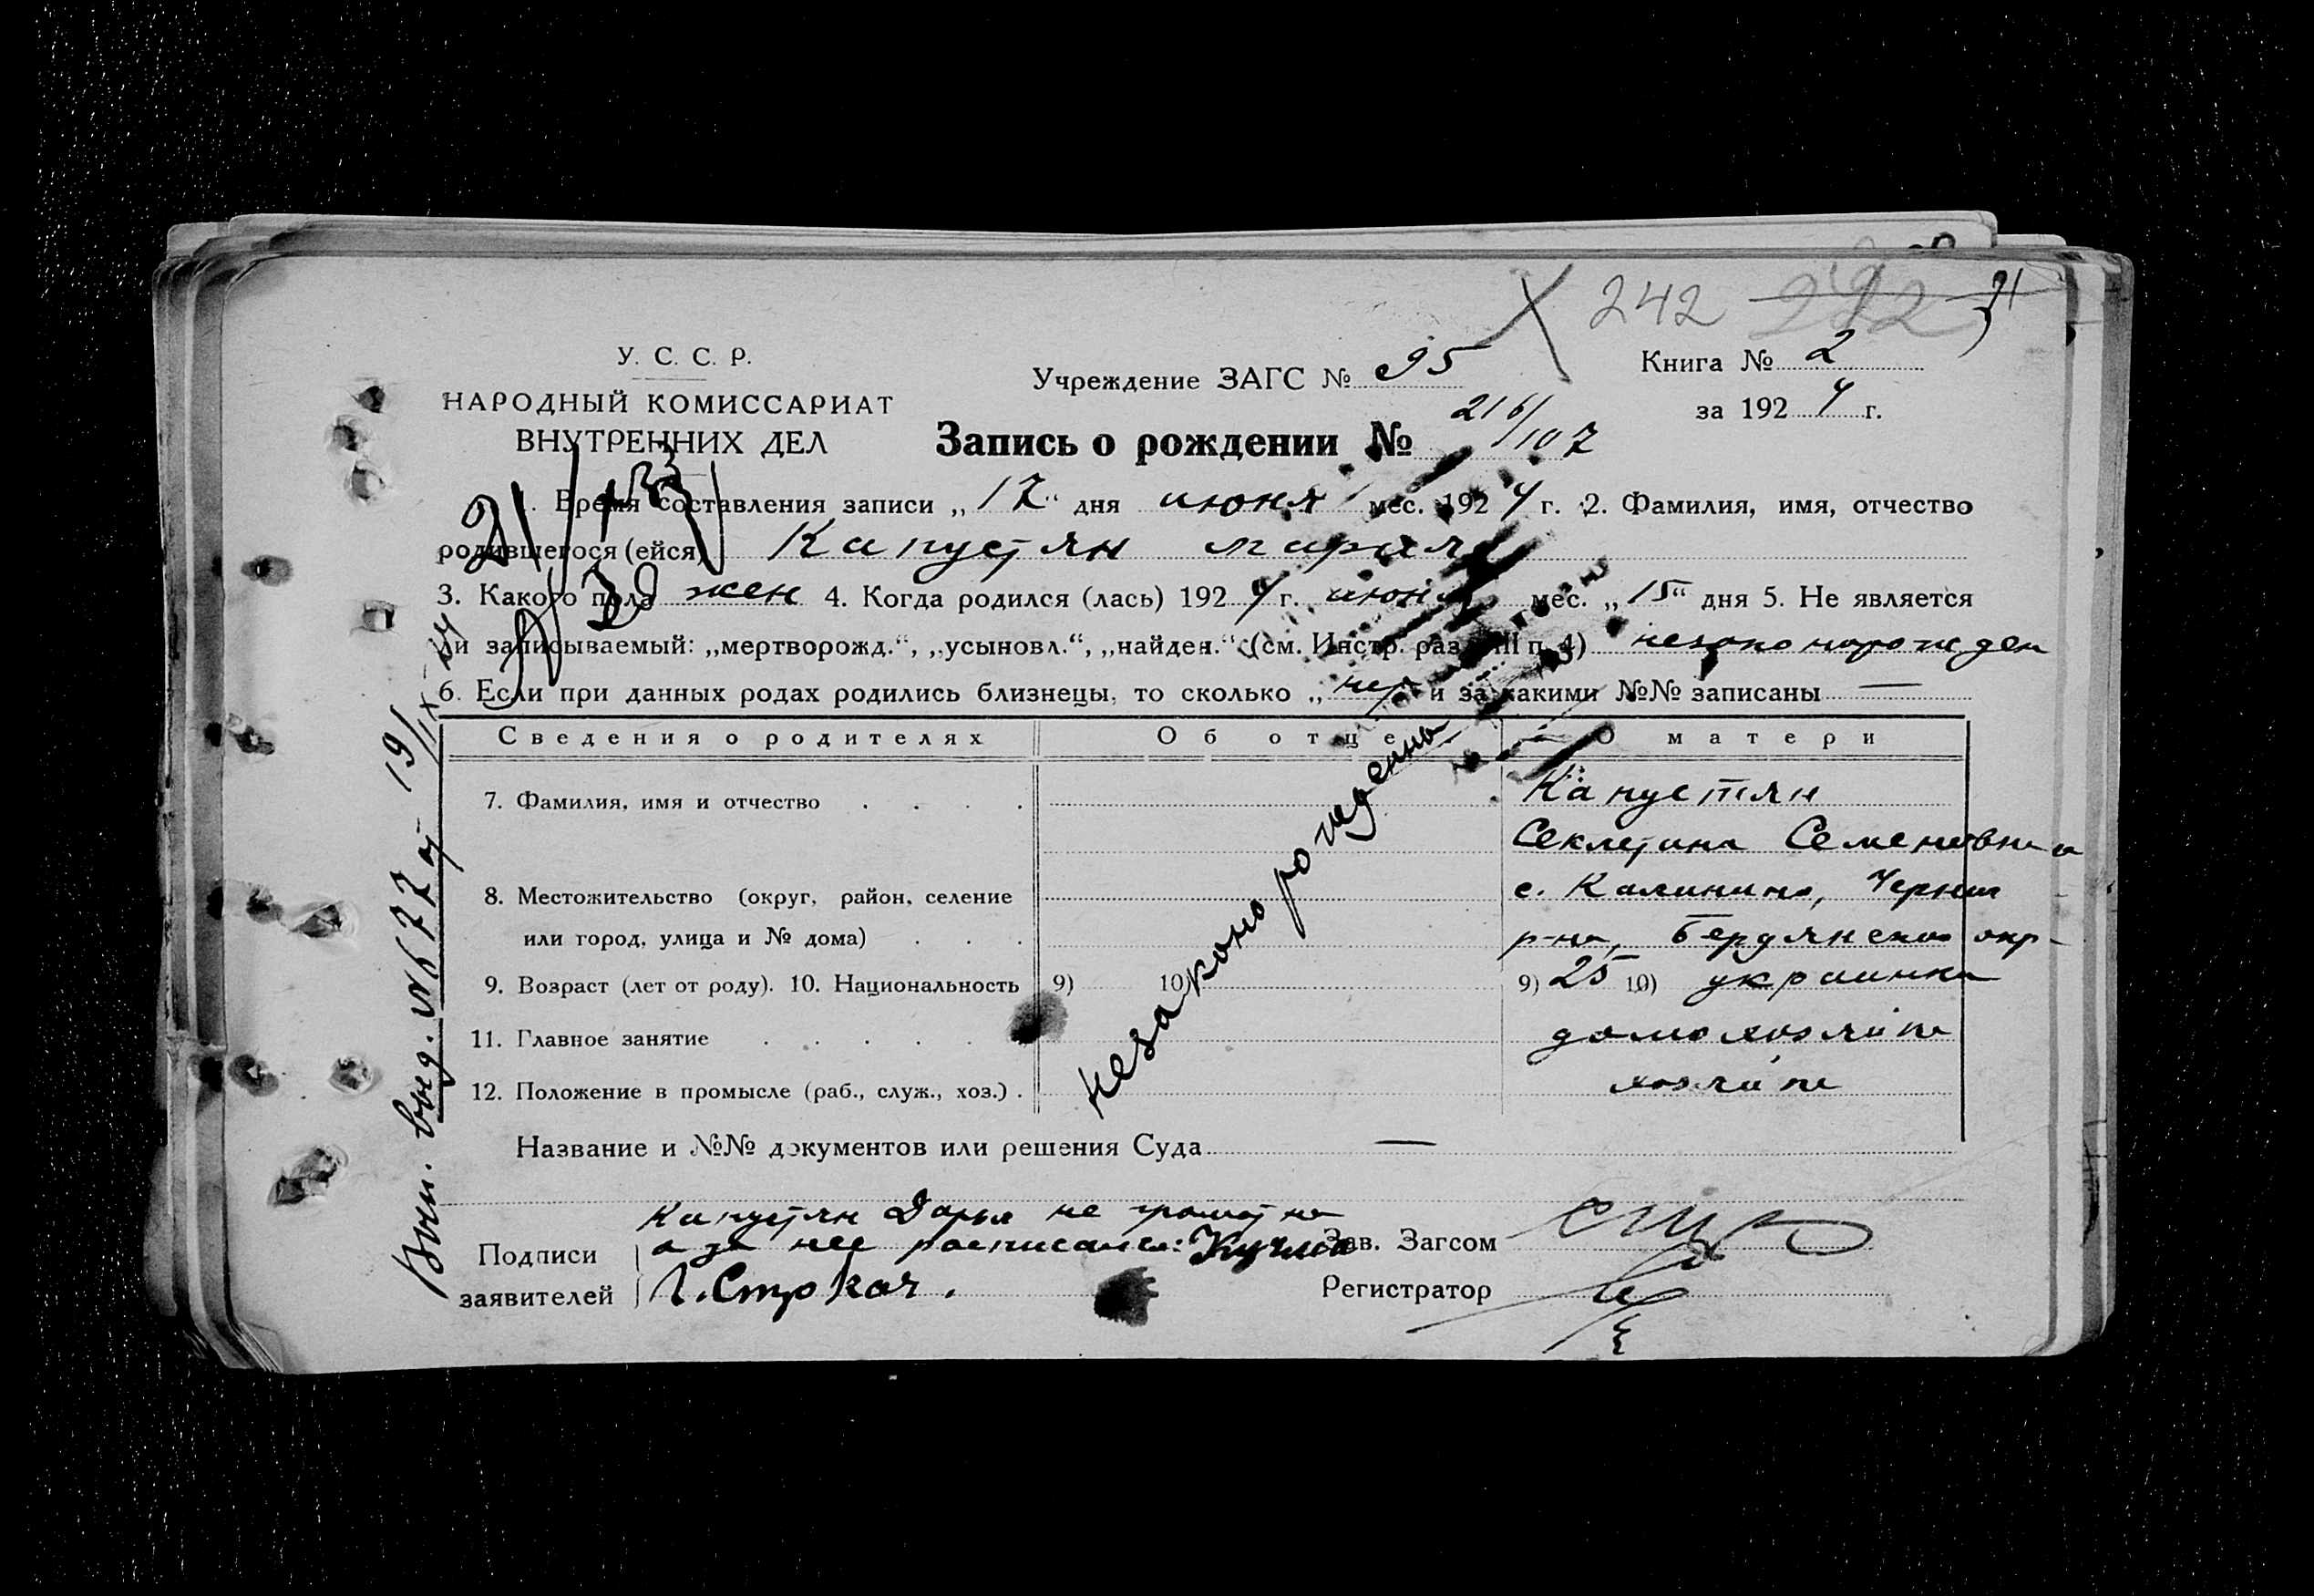 242
У. С. С. Р.
НАРОДНЫЙ КОМИССАРИАТ
ВНУТРЕННИХ ДЕЛ
Учреждение ЗАГС № 95
Книга № 2
за 1924 г.
Запись о рождении № 216/107
1. Время составления записи „17“ дня июня мес. 1924 г. 2. Фамилия, имя, отчество
родившегося (ейся) Капустян Мария
3. Какого пола жен 4. Когда родился (лась) 1924 г. июня мес. „15“ дня 5. Не является
ли записываемый: „мертворожд.“, „усыновл.“, „найден.“ (см. Инстр. разд. III п. 4) незаконорожден
6. Если при данных родах родились близнецы, то сколько „нет“ и за какими №№ записаны —
Сведения о родителях Об отце О матери
7. Фамилия, имя и отчество . . . . Капустян
Секлетина Семеновна
8. Местожительство (округ, район, селение с. Калинино, Черниг
или город, улица и № дома) . . . р-на, Бердянско окр-
9. Возраст (лет от роду). 10. Национальность 9) 10) 9) 25 10) украинка
11. Главное занятие . . . . . домохозяйка
12. Положение в промысле (раб., служ., хоз.) . хозяйка
незаконорожденны
Название и №№ документов или решения Суда —
Капустян Дарья не грамотна
Подписи а за нее расписался: Кучма Зав. Загсом
заявителей Г. Стркач. Регистратор
Вып. выд. № 677 от 19/IX-24